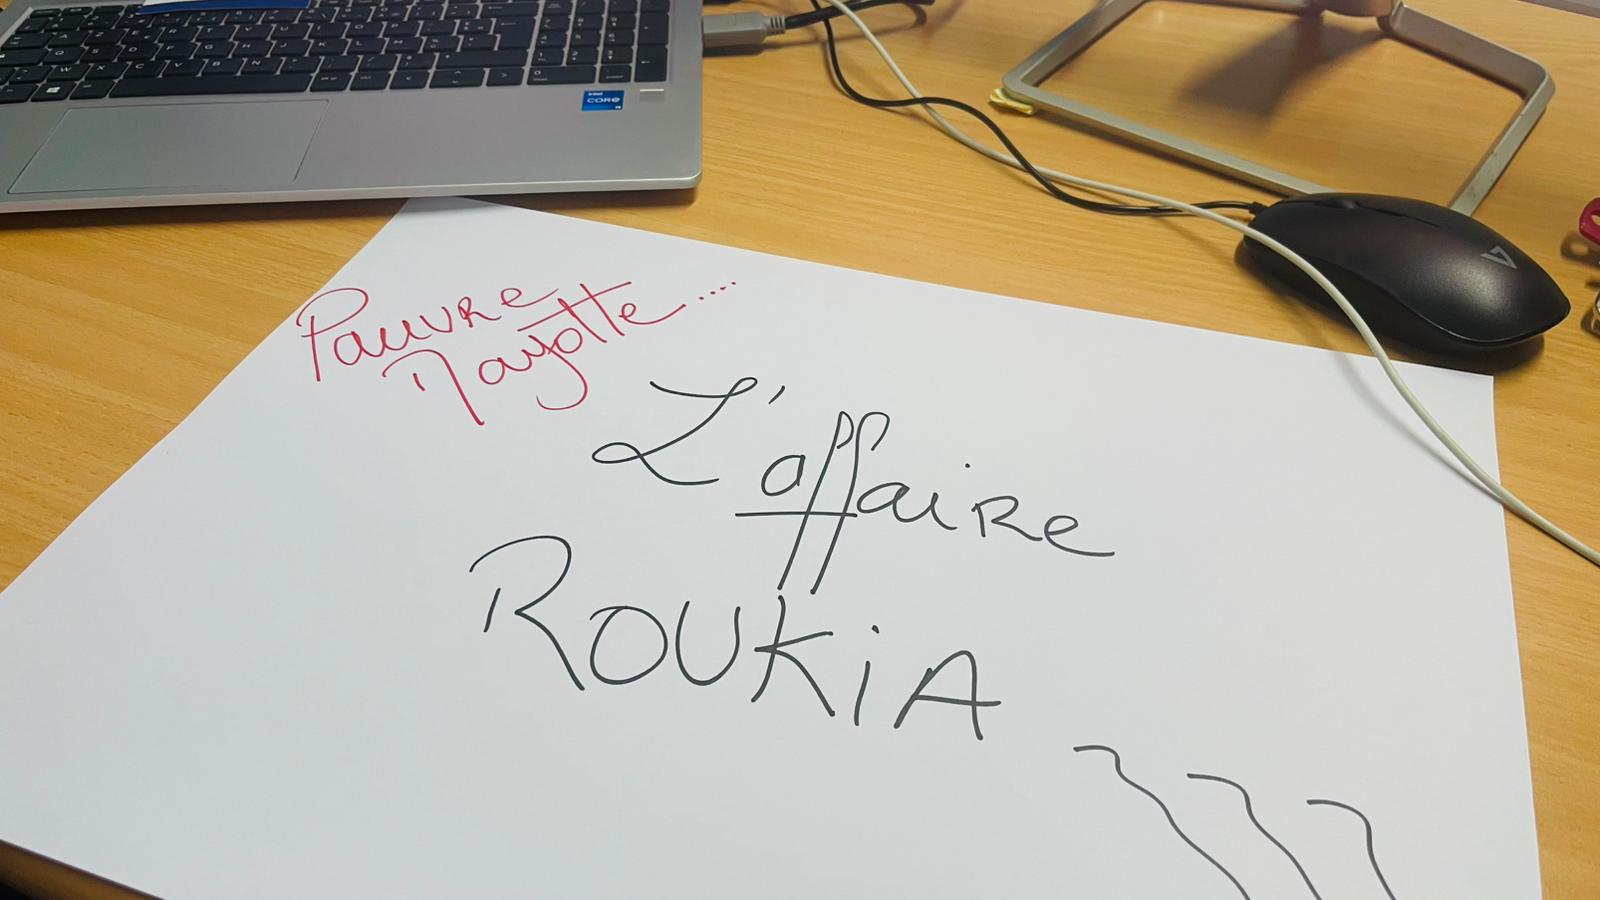 Pauvre
Mayotte ....
L'affaire
ROUKiA
intel
CORE